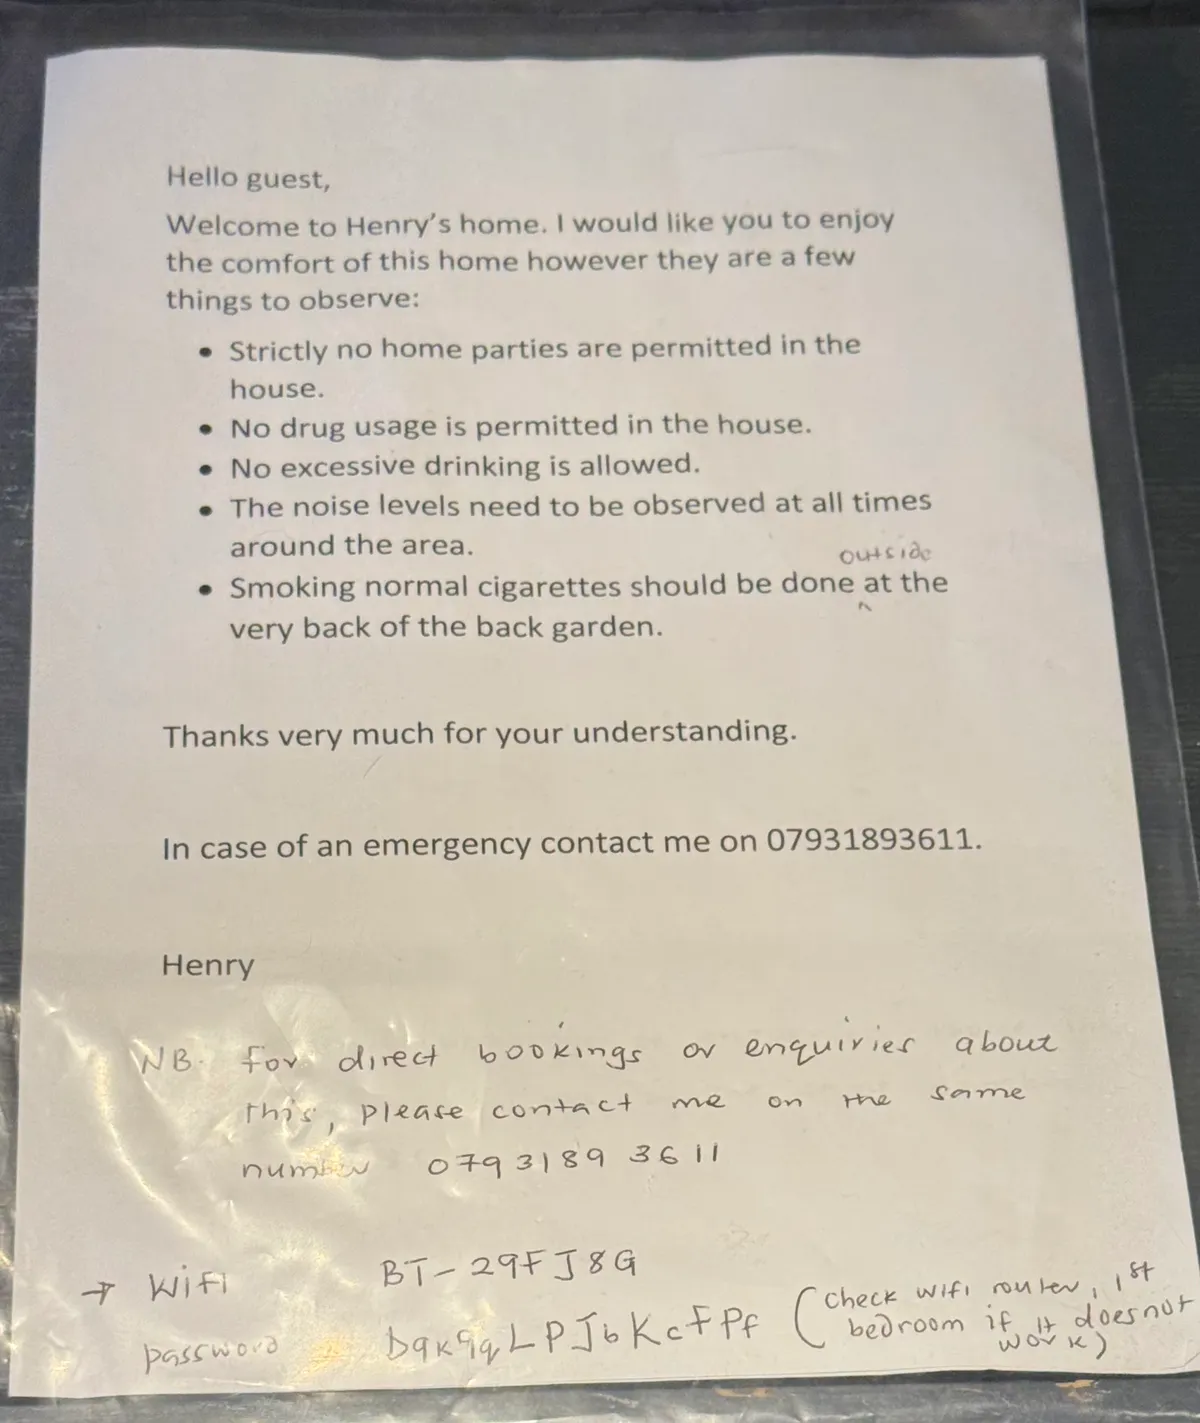 Hello guest,
Welcome to Henry's home. I would like you to enjoy
the comfort of this home however they are a few
things to observe:
• Strictly no home parties are permitted in the
house.
• No drug usage is permitted in the house.
• No excessive drinking is allowed.
• The noise levels need to be observed at all times
around the area.
outside
• Smoking normal cigarettes should be done ^ at the
very back of the back garden.
Thanks very much for your understanding.
In case of an emergency contact me on 07931893611.
Henry
NB. for direct bookings or enquiries about
this, please contact me on the same
number 0793189 3611
→ WiFi BT-29FJ8G
password (check wifi router, 1st
bedroom if it does not
work)